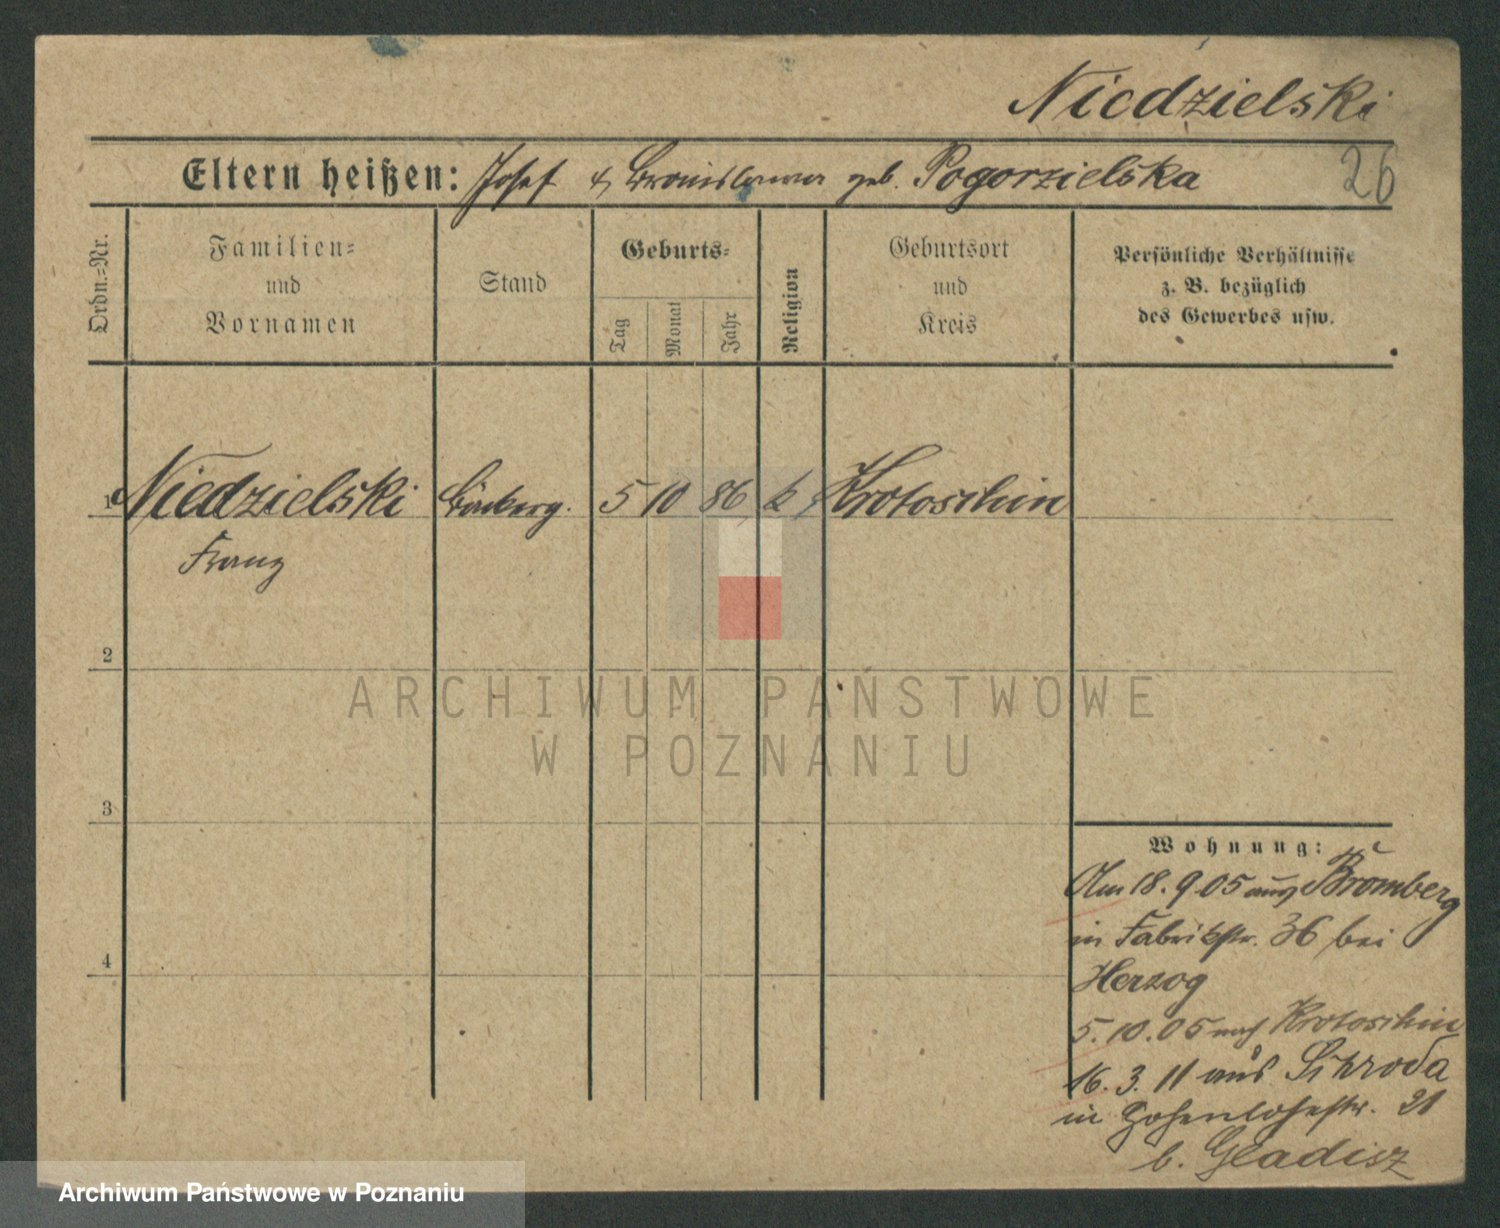 Niedzielski
26
Eltern heißen: Josef & Bronislawa geb. Pogorzielska
Ordn.=Nr.
Familien=
und
Vornamen
Stand
Geburts=
Tag
Monat
Jahr
Religion
Geburtsort
und
Kreis
Persönliche Verhältnisse
z. B. bezüglich
des Gewerbes usw.
1 Niedzielski 5 10 86 k Krotoschin
Franz
2
3
4
Wohnung:
Am 18.9.05 aus Bromberg
in Fabrikstr. 36 bei
Herzog
5.10.05 nach Krotoschin
16.3.11 aus Schroda
in Hohenlohestr. 21
b. Gladisz
ARCHIWUM PAŃSTWOWE
W POZNANIU
Archiwum Państwowe w Poznaniu